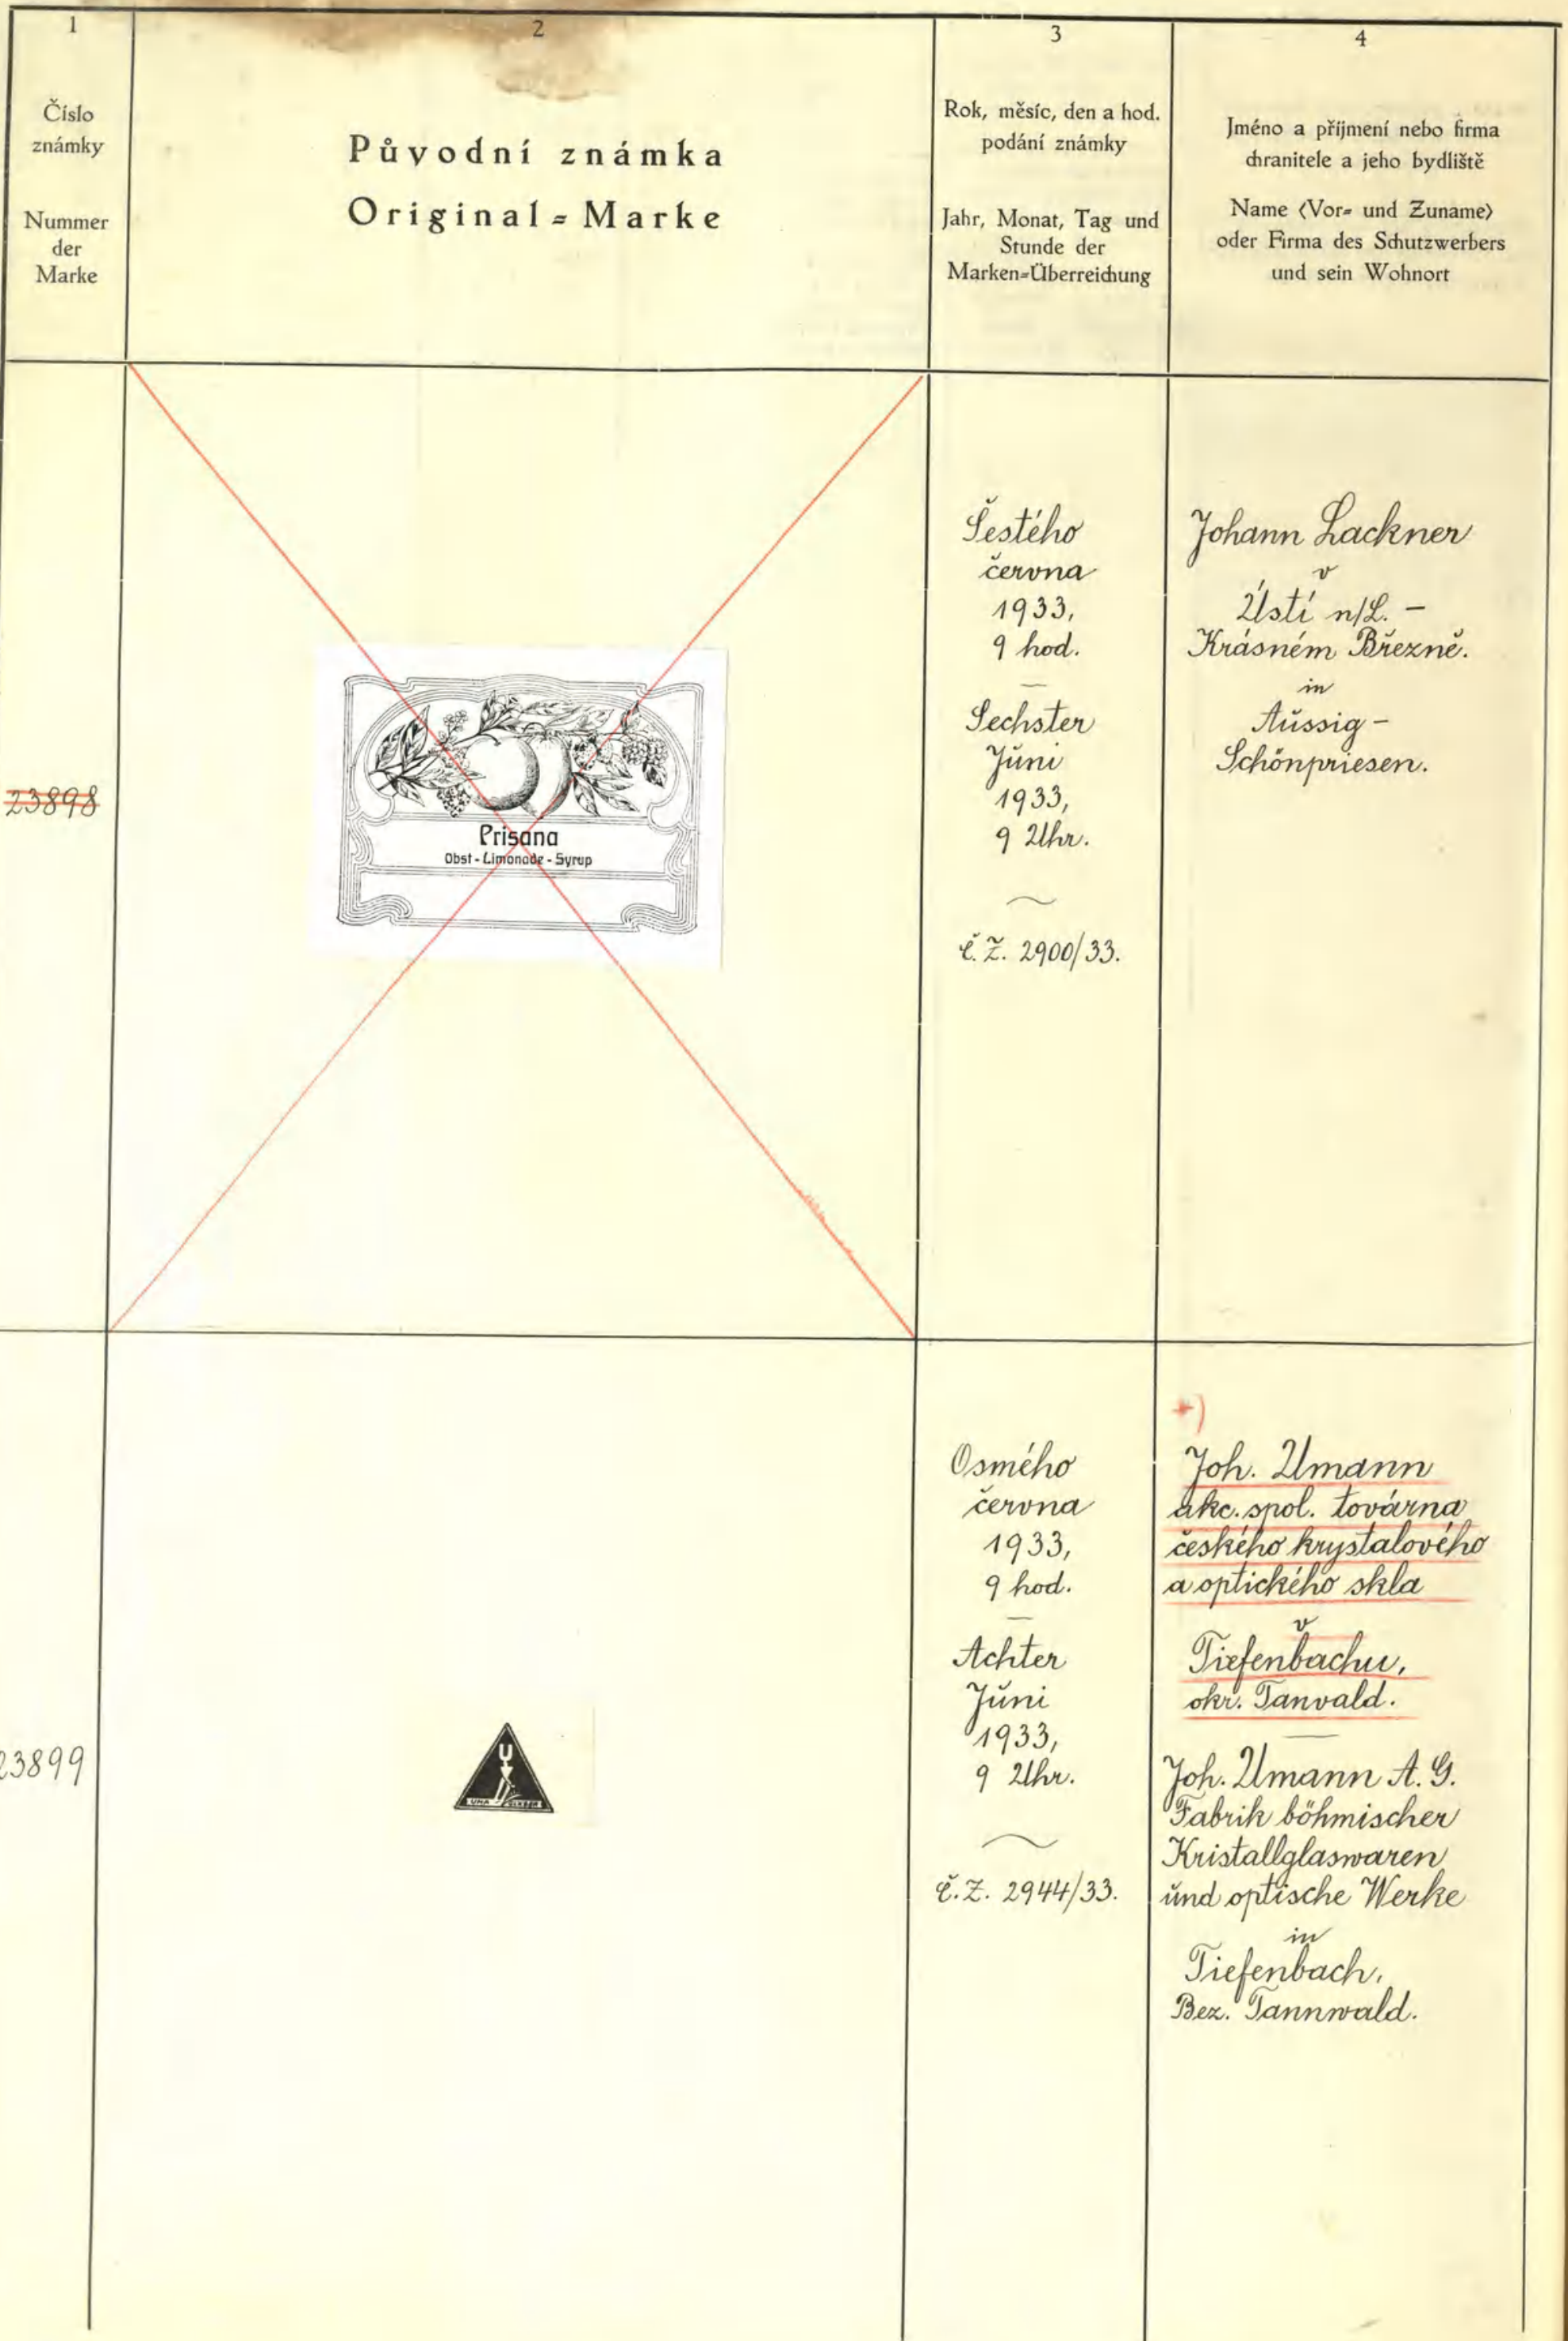 1
Číslo
známky
Nummer
der
Marke
2
Původní známka
Original=Marke
3
Rok, měsíc, den a hod.
podání známky
Jahr, Monat, Tag und
Stunde der
Marken=Überreichung
4
Jméno a příjmení nebo firma
chranitele a jeho bydliště
Name (Vor= und Zuname)
oder Firma des Schutzwerbers
und sein Wohnort
23898
Prisana
Obst-Limonade-Syrup
Šestého
června
1933,
9 hod.
Sechster
Juni
1933,
9 Uhr.
Č.Ž. 2900/33.
Johann Lackner
v
Ústí n/L. -
Krásném Březně.
in
Aussig -
Schönpriesen.
23899
U
UMA
Osmého
června
1933,
9 hod.
Achter
Juni
1933,
9 Uhr.
Č.Z. 2944/33.
+)
Joh. Umann
akc. spol. továrna
českého krystalového
a optického skla
v
Tiefenbachu,
okr. Tanvald.
Joh. Umann A. G.
Fabrik böhmischer
Kristallglaswaren
und optische Werke
in
Tiefenbach,
Bez. Tannwald.